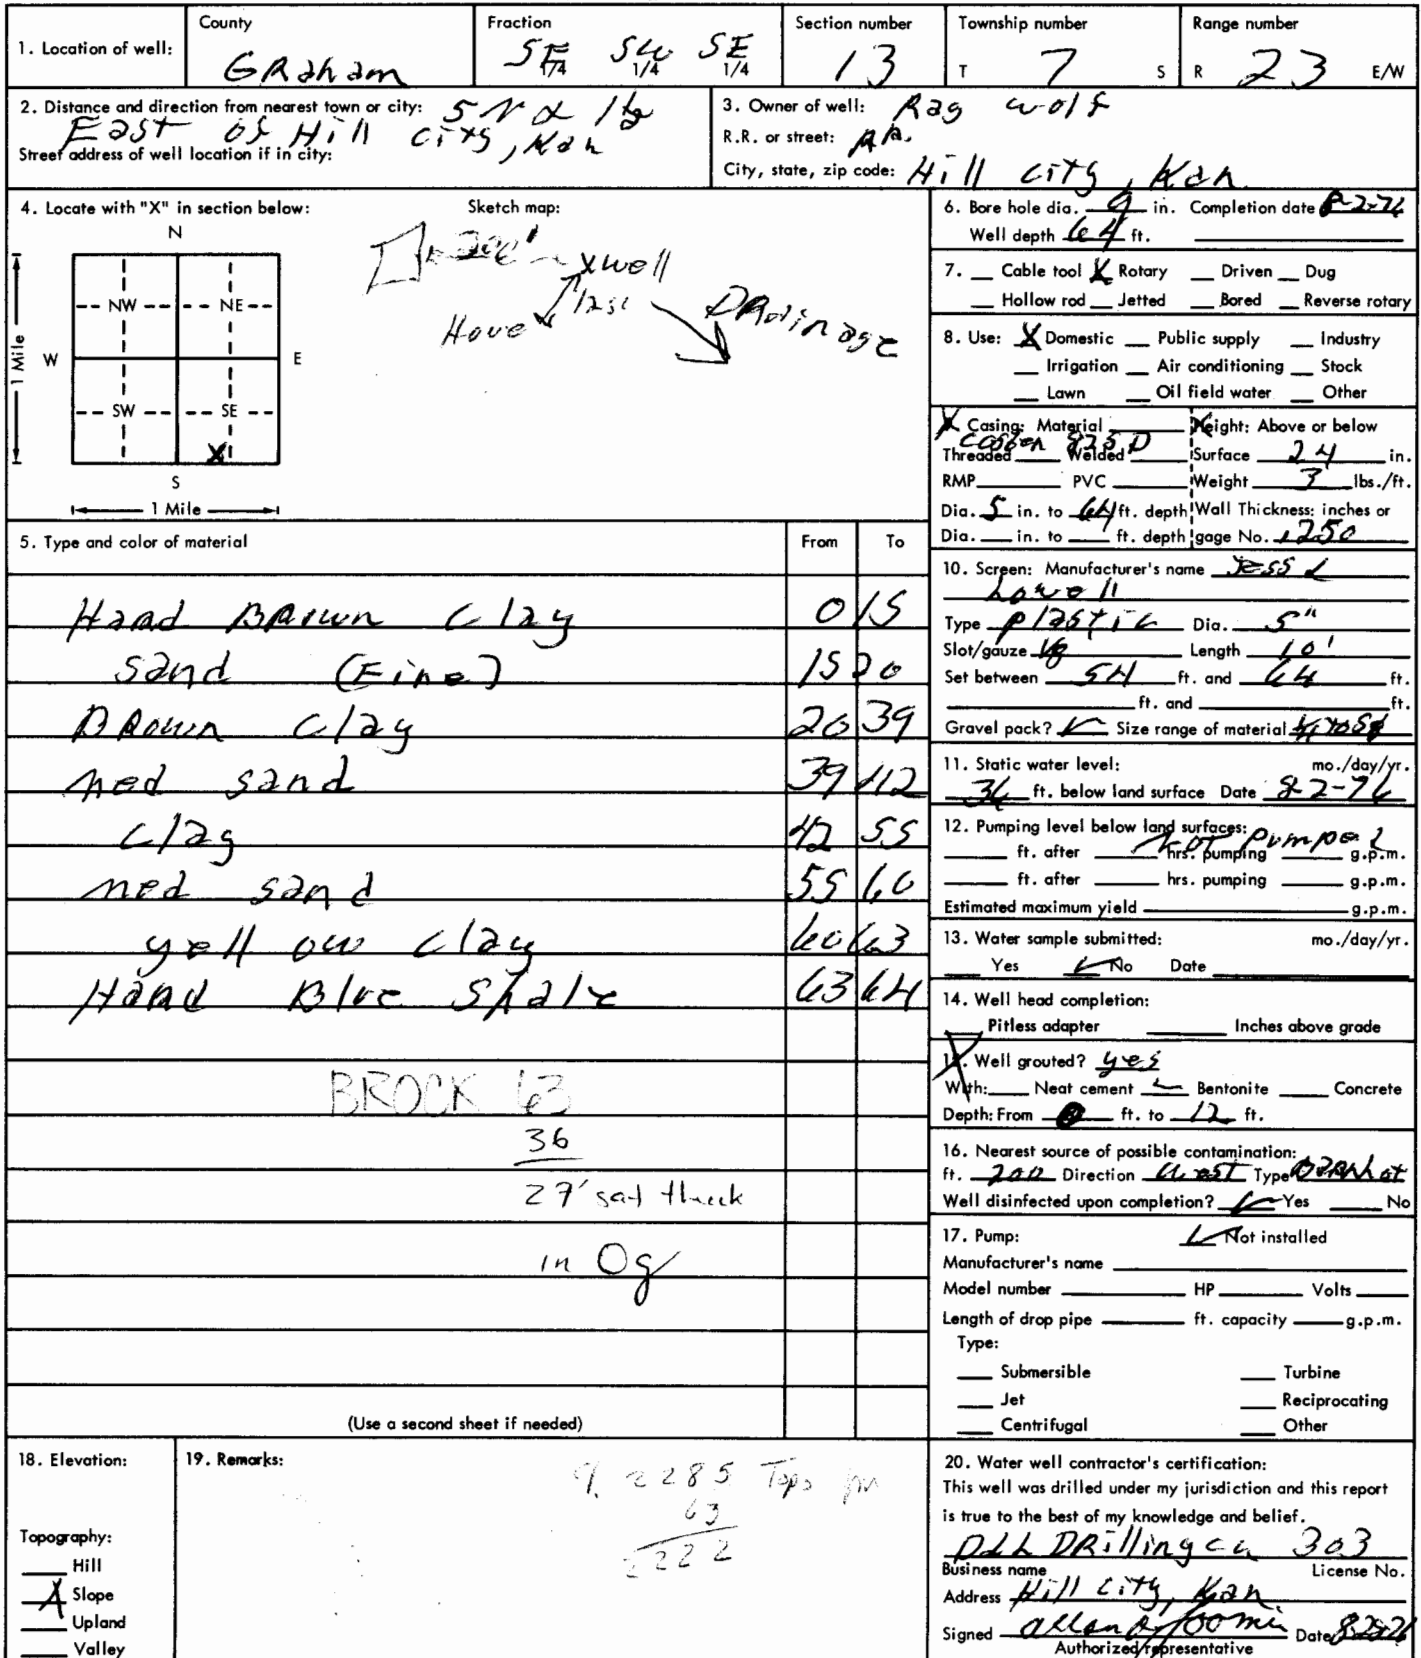 1. Location of well:
County
GRaham
Fraction
SE 1/4 SW 1/4 SE 1/4
Section number
13
Township number
T 7 S
Range number
R 23 E/W
2. Distance and direction from nearest town or city: 5 N & 1 1/2
East of Hill city, Kan
Street address of well location if in city:
3. Owner of well: Ray wolf
R.R. or street: RR.
City, state, zip code: Hill city, Kan
4. Locate with "X" in section below:
N
NW NE
W E
SW SE
X
S
1 Mile
1 Mile
Sketch map:
200' xwell
125'
House
DRainage
6. Bore hole dia. 9 in. Completion date 8-2-76
Well depth 64 ft.
7. Cable tool X Rotary Driven Dug
Hollow rod Jetted Bored Reverse rotary
8. Use: X Domestic Public supply Industry
Irrigation Air conditioning Stock
Lawn Oil field water Other
X Casing: Material Height: Above or below
Threaded Welded Surface 24 in.
RMP PVC Weight 3 lbs./ft.
Dia. 5 in. to 64 ft. depth Wall Thickness: inches or
Dia. in. to ft. depth gage No. .250
5. Type and color of material From To
Hard BRown Clay 0 15
sand (Fine) 15 20
BRown clay 20 39
med sand 39 42
clay 42 55
med sand 55 60
yell ow clay 60 63
Hard Blue Shale 63 64
BROCK 63
36
27' sat thick
in Og
(Use a second sheet if needed)
10. Screen: Manufacturer's name Jess &
Lowell
Type plastic Dia. 5"
Slot/gauze 1/8 Length 10'
Set between 54 ft. and 64 ft.
ft. and ft.
Gravel pack? ✓ Size range of material
11. Static water level: mo./day/yr.
36 ft. below land surface Date 8-2-76
12. Pumping level below land surfaces:
Not pumped
ft. after hrs. pumping g.p.m.
ft. after hrs. pumping g.p.m.
Estimated maximum yield g.p.m.
13. Water sample submitted: mo./day/yr.
Yes ✓ No Date
14. Well head completion:
Pitless adapter Inches above grade
15. Well grouted? yes
With: Neat cement ✓ Bentonite Concrete
Depth: From 0 ft. to 12 ft.
16. Nearest source of possible contamination:
ft. 200 Direction West Type
Well disinfected upon completion? ✓ Yes No
17. Pump: ✓ Not installed
Manufacturer's name
Model number HP Volts
Length of drop pipe ft. capacity g.p.m.
Type:
Submersible Turbine
Jet Reciprocating
Centrifugal Other
18. Elevation:
Topography:
Hill
X Slope
Upland
Valley
19. Remarks:
2285 Topo
63
2222
20. Water well contractor's certification:
This well was drilled under my jurisdiction and this report
is true to the best of my knowledge and belief.
DRilling co 303
Business name License No.
Address Hill City, Kan.
Signed Allen Date
Authorized representative